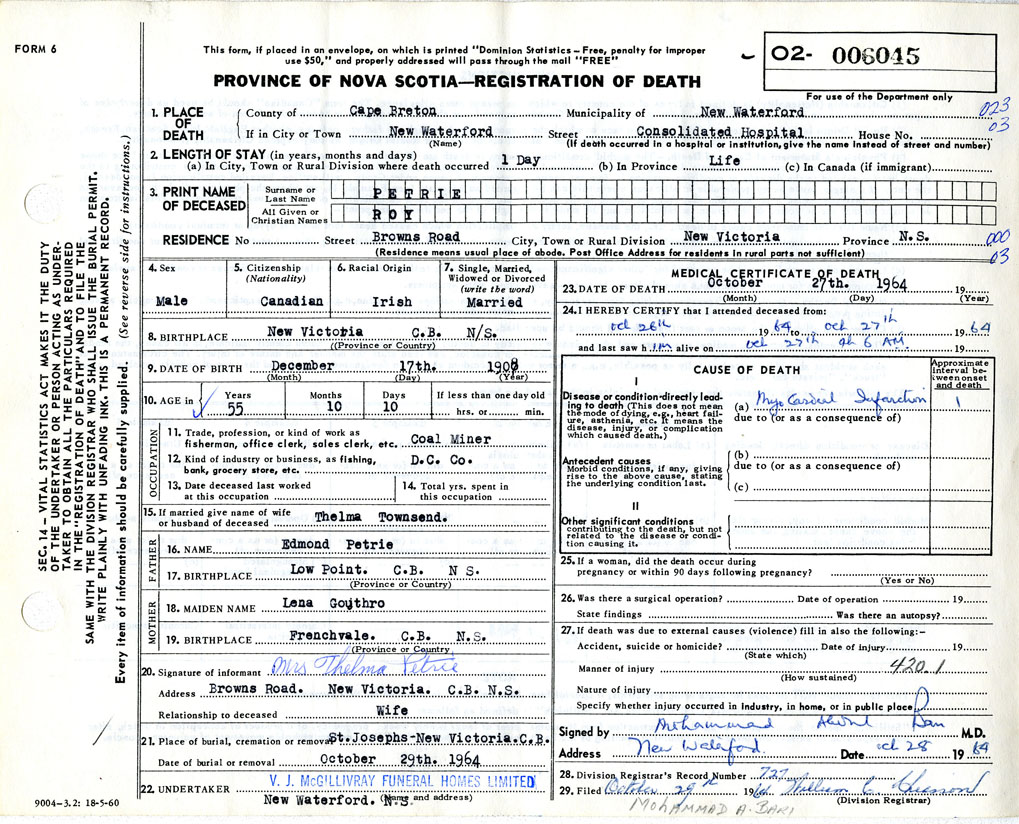 FORM 6
This form, if placed in an envelope, on which is printed "Dominion Statistics – Free, penalty for improper
use $50," and properly addressed will pass through the mail "FREE"
PROVINCE OF NOVA SCOTIA—REGISTRATION OF DEATH
O2- 006045
For use of the Department only
SEC. 14 – VITAL STATISTICS ACT MAKES IT THE DUTY
OF THE UNDERTAKER OR PERSON ACTING AS UNDER-
TAKER TO OBTAIN ALL THE PARTICULARS REQUIRED
IN THE "REGISTRATION OF DEATH" AND TO FILE THE
SAME WITH THE DIVISION REGISTRAR WHO SHALL ISSUE THE BURIAL PERMIT.
WRITE PLAINLY WITH UNFADING INK. THIS IS A PERMANENT RECORD.
Every item of information should be carefully supplied. (See reverse side for instructions.)
1. PLACE OF DEATH County of Cape Breton Municipality of New Waterford 023
If in City or Town New Waterford Street Consolidated Hospital House No. 03
(Name) (If death occurred in a hospital or institution, give the name instead of street and number)
2. LENGTH OF STAY (in years, months and days)
(a) In City, Town or Rural Division where death occurred 1 Day (b) In Province Life (c) In Canada (if immigrant)
3. PRINT NAME OF DECEASED Surname or Last Name PETRIE
All Given or Christian Names ROY
RESIDENCE No Street Browns Road City, Town or Rural Division New Victoria Province N.S. 000
(Residence means usual place of abode. Post Office Address for residents in rural parts not sufficient) 03
4. Sex 5. Citizenship (Nationality) 6. Racial Origin 7. Single, Married, Widowed or Divorced (write the word)
Male Canadian Irish Married
8. BIRTHPLACE New Victoria C.B. N/S.
(Province or Country)
9. DATE OF BIRTH December 17th. 1908
(Month) (Day) (Year)
10. AGE in Years Months Days If less than one day old
55 10 10 hrs. or min.
OCCUPATION
11. Trade, profession, or kind of work as
fisherman, office clerk, sales clerk, etc. Coal Miner
12. Kind of industry or business, as fishing,
bank, grocery store, etc. D.C. Co.
13. Date deceased last worked
at this occupation
14. Total yrs. spent in
this occupation
15. If married give name of wife
or husband of deceased Thelma Townsend.
FATHER
16. NAME Edmond Petrie
17. BIRTHPLACE Low Point. C.B. N S.
(Province or Country)
MOTHER
18. MAIDEN NAME Lena Gouthro
19. BIRTHPLACE Frenchvale. C.B. N.S.
(Province or Country
20. Signature of informant Mrs Thelma Petrie
Address Browns Road. New Victoria. C.B. N.S.
Relationship to deceased Wife
21. Place of burial, cremation or removal St.Josephs-New Victoria.C.B.
Date of burial or removal October 29th. 1964
22. UNDERTAKER V. J. McGILLIVRAY FUNERAL HOMES LIMITED
New Waterford. N.S. (Name and address)
9004-3.2: 18-5-60
MEDICAL CERTIFICATE OF DEATH
23. DATE OF DEATH October 27th. 1964 19
(Month) (Day) (Year)
24. I HEREBY CERTIFY that I attended deceased from:
Oct 26th 1964 to Oct 27th 1964
and last saw him alive on Oct 27th at 6 AM 19
CAUSE OF DEATH
Approximate interval between onset and death
I
Disease or condition directly leading to death (This does not mean the mode of dying, e.g., heart failure, asthenia, etc. It means the disease, injury, or complication which caused death.)
(a) Myocardial Infarction 1
due to (or as a consequence of)
Antecedent causes
Morbid conditions, if any, giving rise to the above cause, stating the underlying condition last.
(b)
due to (or as a consequence of)
(c)
II
Other significant conditions
contributing to the death, but not related to the disease or condition causing it.
25. If a woman, did the death occur during
pregnancy or within 90 days following pregnancy?
(Yes or No)
26. Was there a surgical operation? Date of operation 19
State findings Was there an autopsy?
27. If death was due to external causes (violence) fill in also the following:–
Accident, suicide or homicide? Date of injury 19
(State which)
Manner of injury 420.1
(How sustained)
Nature of injury
Specify whether injury occurred in industry, in home, or in public place
Signed by Mohammad Abdul Bari M.D.
Address New Waterford Date Oct 28 1964
28. Division Registrar's Record Number 727
29. Filed October 29th 1964 William C Chiasson
(Division Registrar)
MOHAMMAD A. BARI